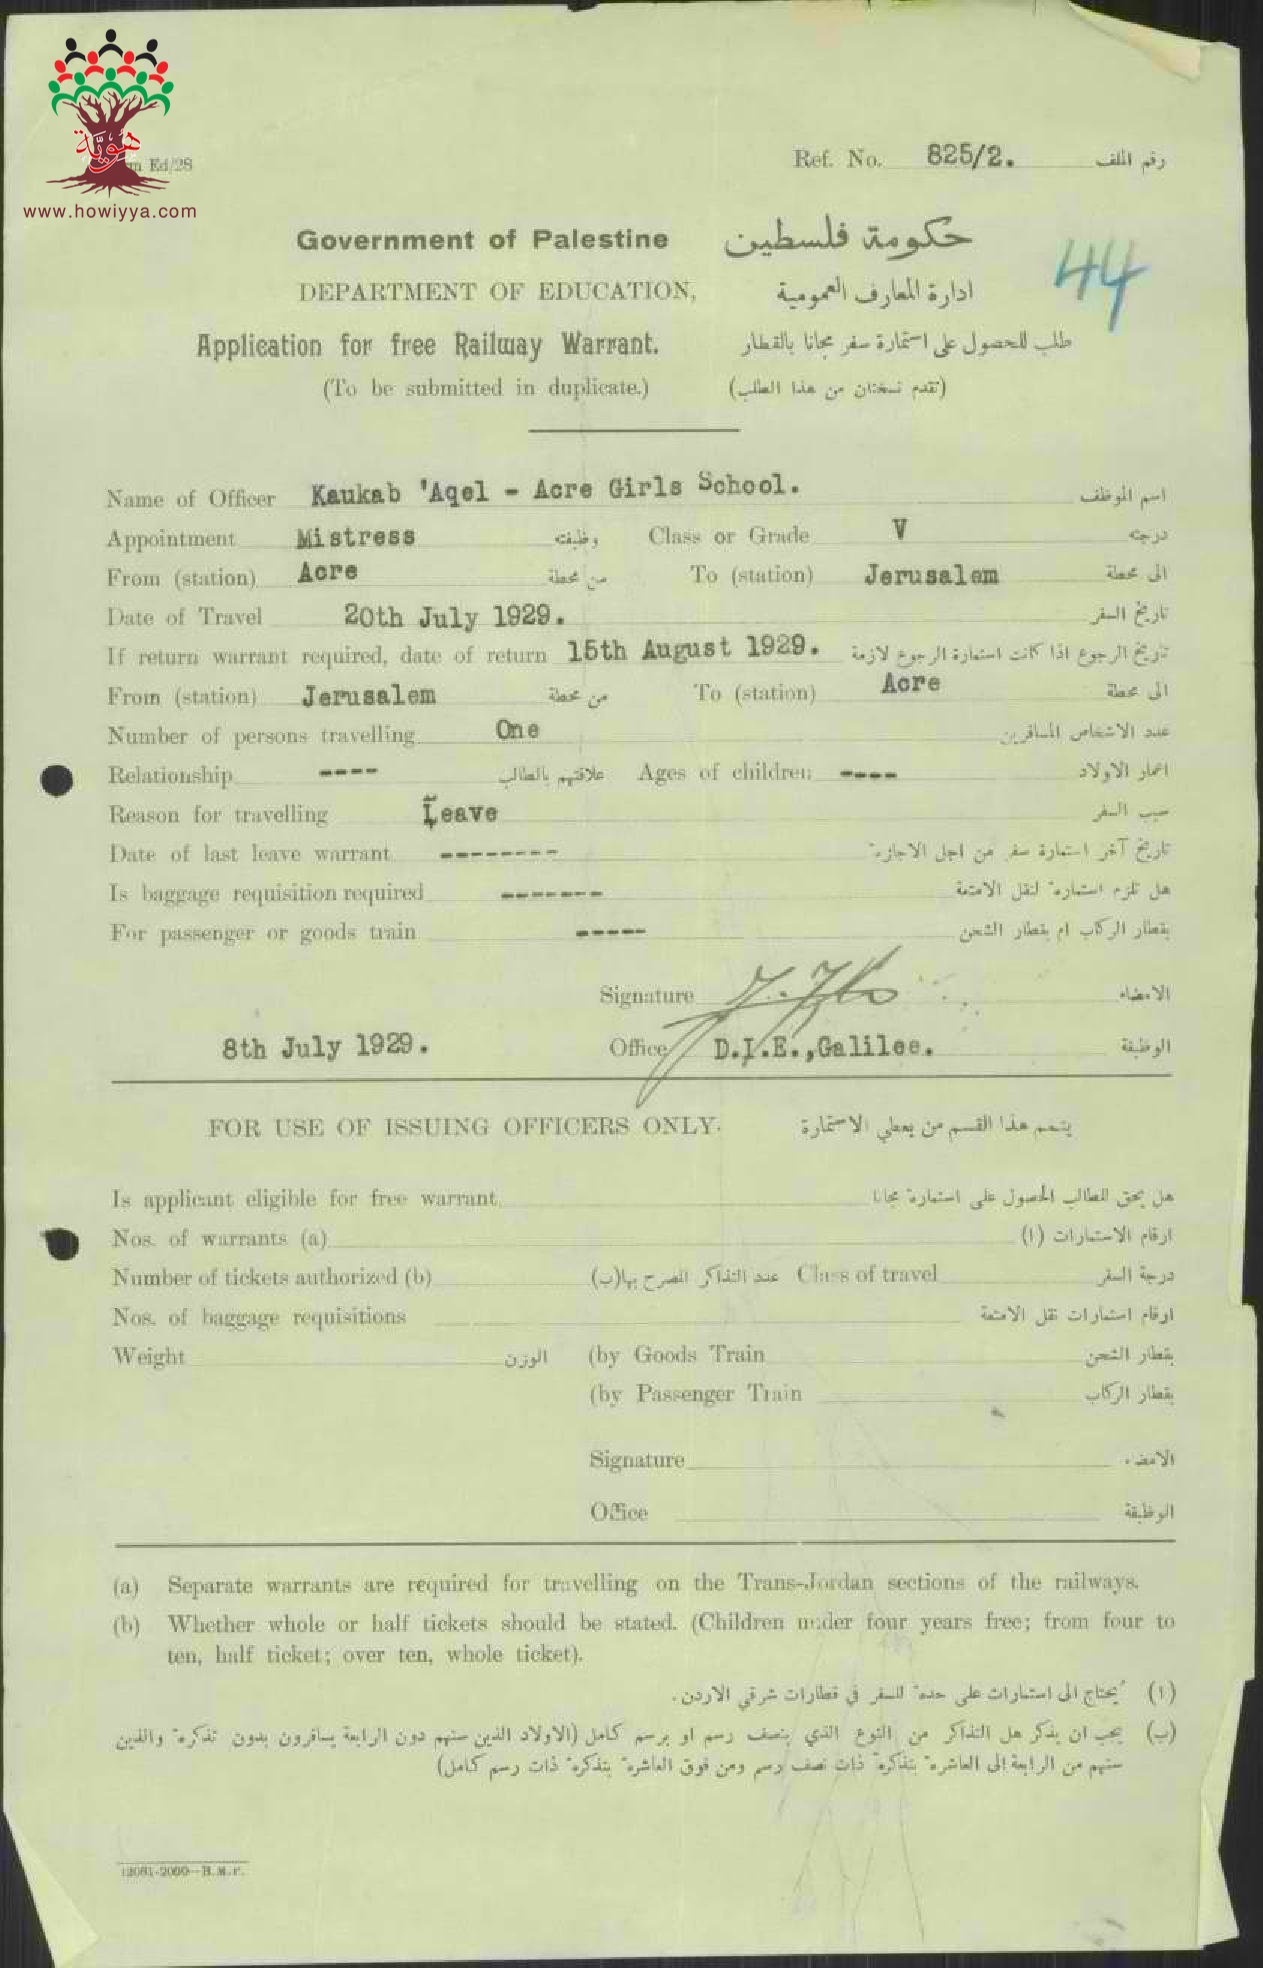 هوية
www.howiyya.com
Ed/28
Ref. No. 825/2. رقم الملف
44
Government of Palestine حكومة فلسطين
DEPARTMENT OF EDUCATION, ادارة المعارف العمومية
Application for free Railway Warrant. طلب للحصول على استمارة سفر مجانا بالقطار
(To be submitted in duplicate.) (تقدم نسختان من هذا الطلب)
Name of Officer Kaukab 'Aqel - Acre Girls School. اسم الموظف
Appointment Mistress وظيفته Class or Grade V درجته
From (station) Acre من محطة To (station) Jerusalem الى محطة
Date of Travel 20th July 1929. تاريخ السفر
If return warrant required, date of return 15th August 1929. تاريخ الرجوع اذا كانت استمارة الرجوع لازمة
From (station) Jerusalem من محطة To (station) Acre الى محطة
Number of persons travelling One عدد الاشخاص المسافرين
Relationship ---- علاقتهم بالطالب Ages of children ---- اعمار الاولاد
Reason for travelling Leave سبب السفر
Date of last leave warrant -------- تاريخ آخر استمارة سفر من اجل الاجازة
Is baggage requisition required ------- هل تلزم استمارة لنقل الامتعة
For passenger or goods train ----- بقطار الركاب ام بقطار الشحن
Signature الامضاء
8th July 1929. Office D.I.E.,Galilee. الوظيفة
FOR USE OF ISSUING OFFICERS ONLY. يتمم هذا القسم من يعطي الاستمارة
Is applicant eligible for free warrant هل يحق للطالب الحصول على استمارة مجانا
Nos. of warrants (a) ارقام الاستمارات (ا)
Number of tickets authorized (b) عدد التذاكر المصرح بها(ب) Class of travel درجة السفر
Nos. of baggage requisitions ارقام استمارات نقل الامتعة
Weight الوزن (by Goods Train بقطار الشحن
(by Passenger Train بقطار الركاب
Signature الامضاء
Office الوظيفة
(a) Separate warrants are required for travelling on the Trans-Jordan sections of the railways.
(b) Whether whole or half tickets should be stated. (Children under four years free; from four to
ten, half ticket; over ten, whole ticket).
(ا) يحتاج الى استمارات على حدة للسفر في قطارات شرقي الاردن.
(ب) يجب ان يذكر هل التذاكر من النوع الذي بنصف رسم او برسم كامل (الاولاد الذين سنهم دون الرابعة يسافرون بدون تذكرة والذين
سنهم من الرابعة الى العاشرة بتذكرة ذات نصف رسم ومن فوق العاشرة بتذكرة ذات رسم كامل)